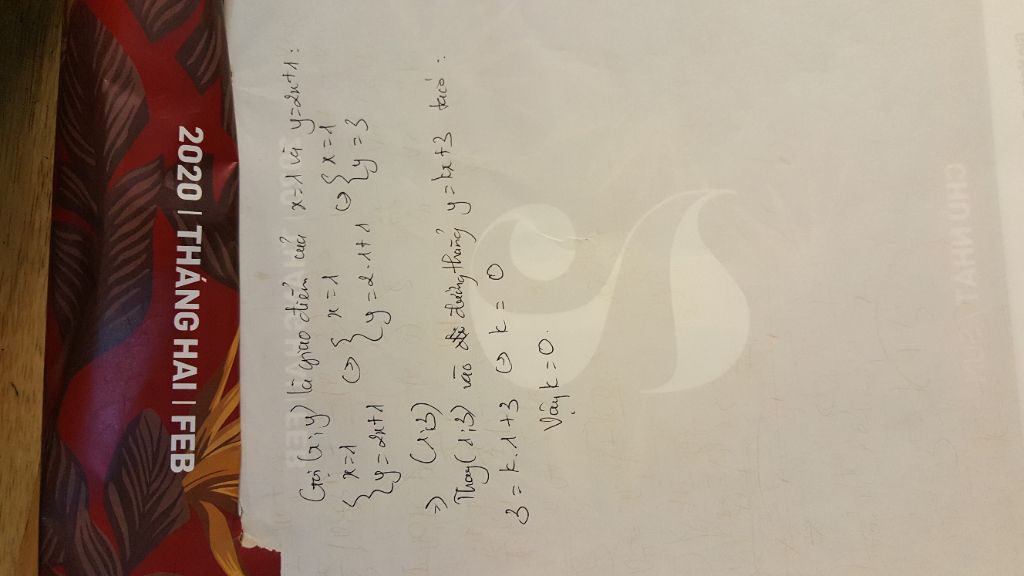 2020 | THÁNG HAI | FEB
Gọi (x;y) là giao điểm của x=1 và y=2x+1:
{ x=1 ⇔ { x=1 ⇔ { x=1
{ y=2x+1 { y=2.1+1 { y=3
⇒ (1;3)
Thay (1;3) vào đường thẳng y=kx+3 ta có:
3 = k.1+3 ⇔ k = 0
Vậy k=0.
CHỦ NHẬT / SUN